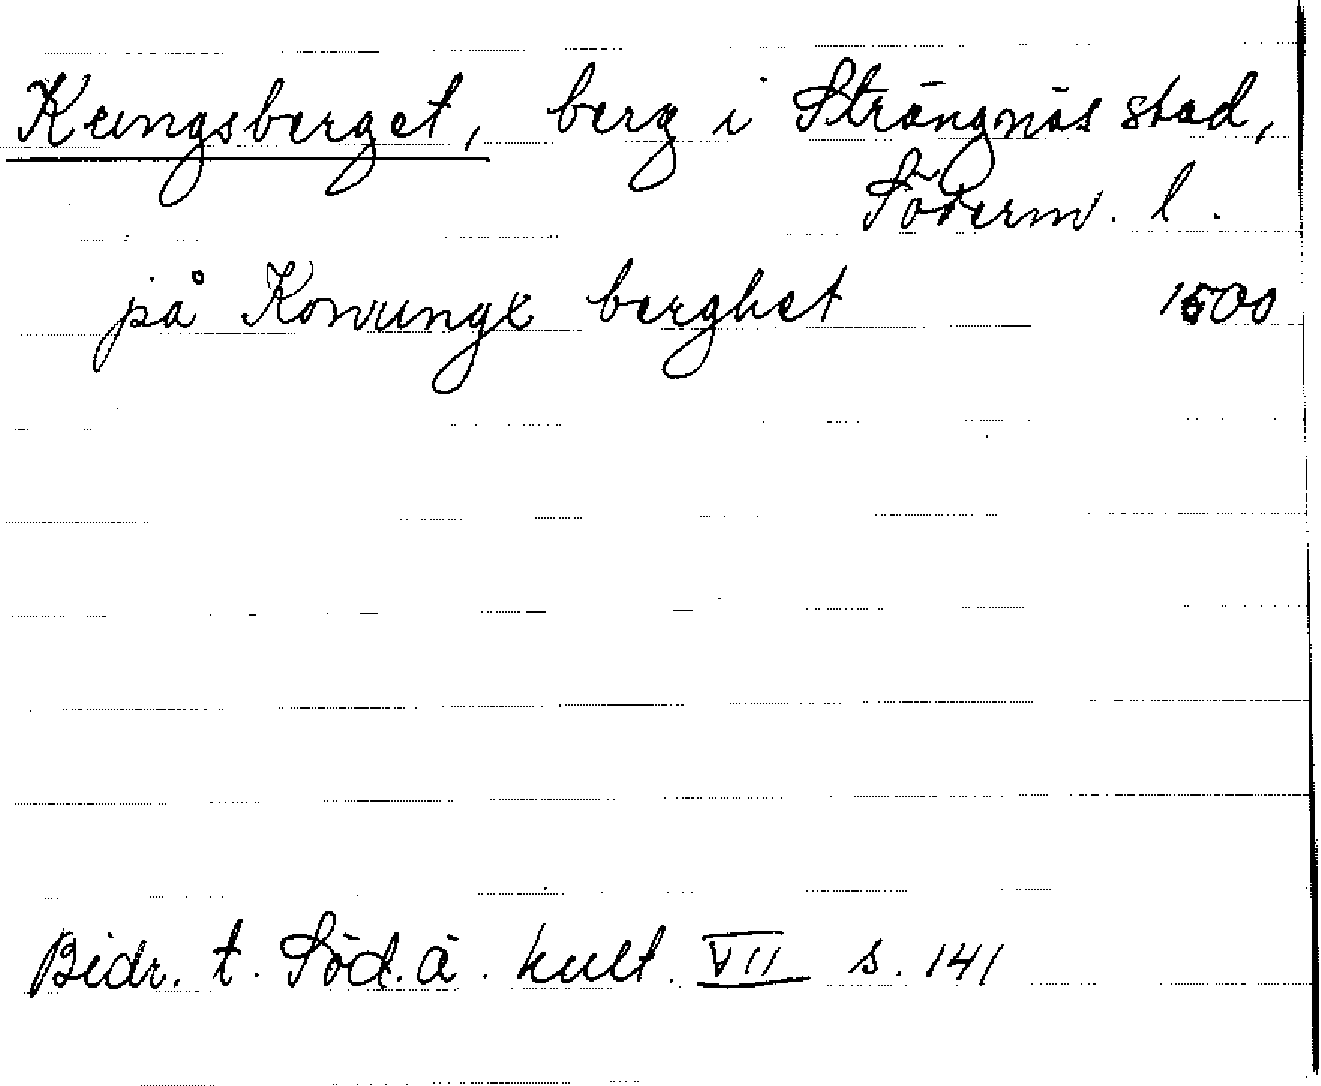 Kungsberget, berg i Strängnäs stad,
Söderm. l.
på Konungx berghet 1500
Bidr. t. Söd. ä. kult. VII s. 141